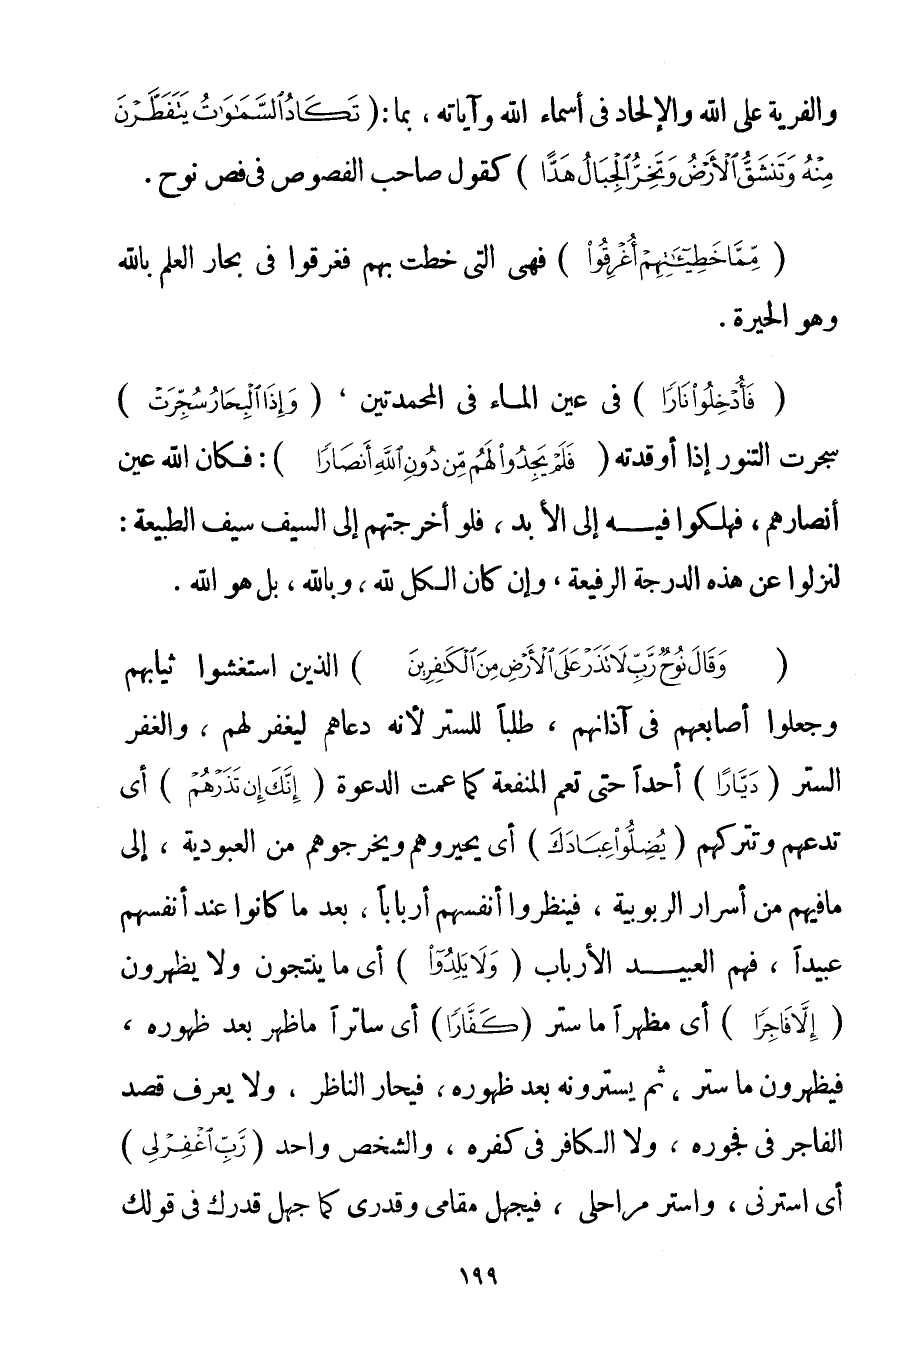 والفرية على الله والإلحاد فى أسماء الله وآياته ، بما : ( تَكَادُ ٱلسَّمَٰوَٰتُ يَتَفَطَّرْنَ
مِنْهُ وَتَنشَقُّ ٱلْأَرْضُ وَتَخِرُّ ٱلْجِبَالُ هَدًّا ) كقول صاحب الفصوص فى فص نوح .
( مِّمَّا خَطِيٓـَٰٔتِهِمْ أُغْرِقُوا۟ ) فهى التى خطت بهم فغرقوا فى بحار العلم بالله
وهو الحيرة .
( فَأُدْخِلُوا۟ نَارًا ) فى عين المـاء فى المحمدتين ، ( وَإِذَا ٱلْبِحَارُ سُجِّرَتْ )
سجرت التنور إذا أوقدته ( فَلَمْ يَجِدُوا۟ لَهُم مِّن دُونِ ٱللَّهِ أَنصَارًا ) : فـكان الله عين
أنصارهم ، فهلكوا فيـــه إلى الأبد ، فلو أخرجتهم إلى السيف سيف الطبيعة :
لنزلوا عن هذه الدرجة الرفيعة ، وإن كان الـكل لله ، وبالله ، بل هو الله .
( وَقَالَ نُوحٌ رَّبِّ لَا تَذَرْ عَلَى ٱلْأَرْضِ مِنَ ٱلْكَٰفِرِينَ ) الذين استغشوا ثيابهم
وجعلوا أصابعهم فى آذانهم ، طلباً للستر لأنه دعاهم ليغفر لهم ، والغفر
الستر ( دَيَّارًا ) أحداً حتى تعم المنفعة كما عمت الدعوة ( إِنَّكَ إِن تَذَرْهُمْ ) أى
تدعهم وتتركهم ( يُضِلُّوا۟ عِبَادَكَ ) أى يحيروهم ويخرجوهم من العبودية ، إلى
مافيهم من أسرار الربوبية ، فينظروا أنفسهم أرباباً ، بعد ما كانوا عند أنفسهم
عبيداً ، فهم العبيـــد الأرباب ( وَلَا يَلِدُوٓا۟ ) أى ما ينتجون ولا يظهرون
( إِلَّا فَاجِرًا ) أى مظهراً ما ستر ( كَفَّارًا ) أى ساتراً ماظهر بعد ظهوره ،
فيظهرون ما ستر ، ثم يسترونه بعد ظهوره ، فيحار الناظر ، ولا يعرف قصد
الفاجر فى فجوره ، ولا الـكافر فى كفره ، والشخص واحد ( رَّبِّ ٱغْفِرْ لِى )
أى استرنى ، واستر مراحلى ، فيجهل مقامى وقدرى كما جهل قدرك فى قولك
١٩٩